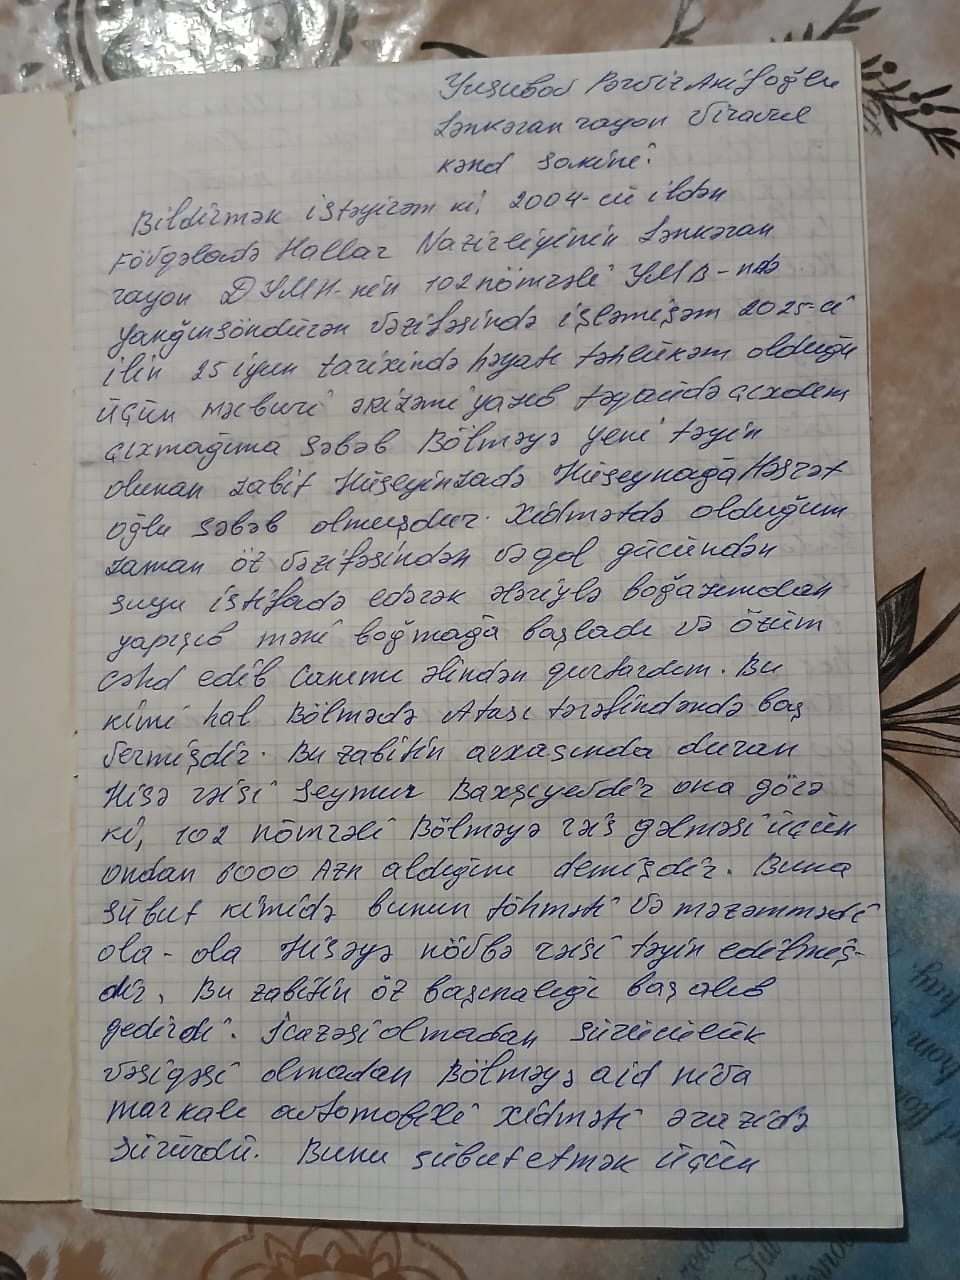 Yusubov Arif oğlu
Lənkəran rayon Viravul
kənd sakini.
Bildirmək istəyirəm ki, 2004-cü ildən
Fövqəladə Hallar Nazirliyinin Lənkəran
rayon DYMH-nin 102 nömrəli YMB-ndə
yanğınsöndürən vəzifəsində işləmişəm 2025-ci
ilin 25 iyun tarixində həyatı təhlükəm olduğu
üçün məcburi ərizəmi yazıb təqaüdə çıxdım
çıxmağıma səbəb Bölməyə yeni təyin
olunan zabit Hüseyinzadə Hüseynağa Həsrət
oğlu səbəb olmuşdur. Xidmətdə olduğum
zaman öz vəzifəsindən və qol gücündən
suyu istifadə edərək ələriylə boğazımdan
yapışıb məni boğmağa başladı və özüm
cəhd edib canımı əlindən qurtardım. Bu
kimi hal Bölmədə Atası tərəfindəndə baş
vermişdir. Bu zabitin arxasında duran
Hisə rəisi Seymur Baxşıyevdir ona görə
ki, 102 nömrəli Bölməyə rəis gəlməsi üçün
ondan 6000 Azn aldığını demişdir. Buna
sübut kimidə bunun töhməti və məzəmməti
ola-ola Hisəyə növbə rəisi təyin edilmiş-
dir. Bu zabitin öz başınalığı baş alıb
gedirdi. İcazəsi olmadan sürücülük
vəsiqəsi olmadan Bölməyə aid niva
markalı avtomobili xidməti ərazidə
sürürdü. Bunu sübut etmək üçün